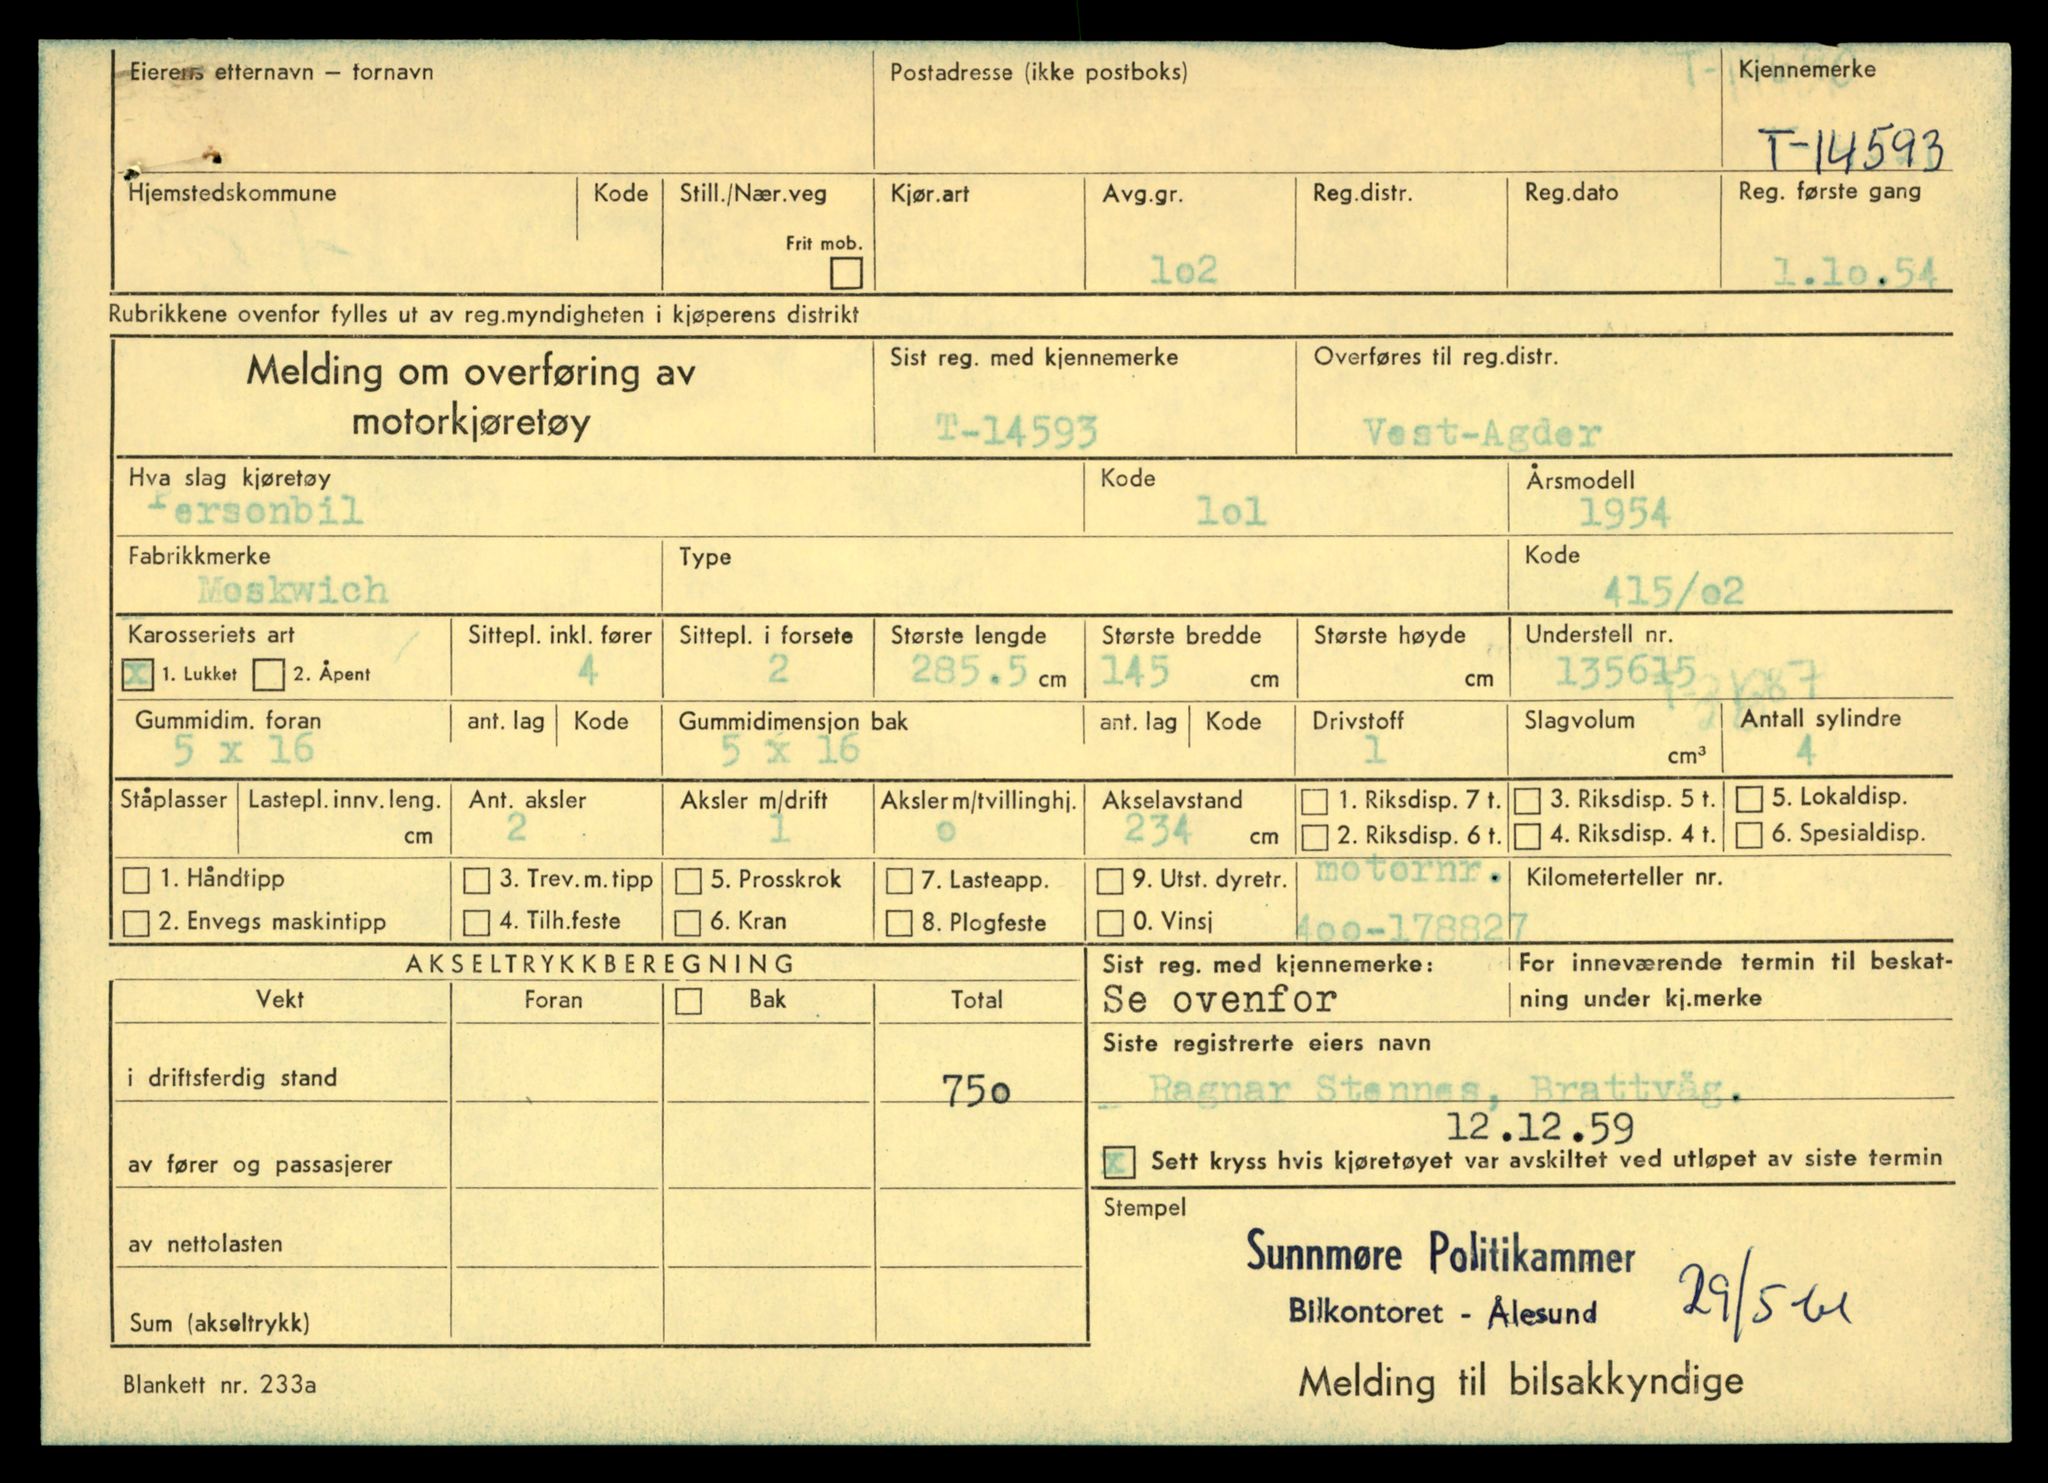 Eierens etternavn – fornavn
Postadresse (ikke postboks)
Kjennemerke
T-14593
Hjemstedskommune
Kode
Still./Nær.veg
Frit mob.
Kjør.art
Avg.gr.
lo2
Reg.distr.
Reg.dato
Reg. første gang
1.lo.54
Rubrikkene ovenfor fylles ut av reg.myndigheten i kjøperens distrikt
Melding om overføring av
motorkjøretøy
Sist reg. med kjennemerke
T-14593
Overføres til reg.distr.
Vest-Agder
Hva slag kjøretøy
Personbil
Kode
lol
Årsmodell
1954
Fabrikkmerke
Moskwich
Type
Kode
415/o2
Karosseriets art
X 1. Lukket 2. Åpent
Sittepl. inkl. fører
4
Sittepl. i forsete
2
Største lengde
285.5 cm
Største bredde
145 cm
Største høyde
cm
Understell nr.
135615
Gummidim. foran
5 x 16
ant. lag
Kode
Gummidimensjon bak
5 x 16
ant. lag
Kode
Drivstoff
1
Slagvolum
cm³
Antall sylindre
4
Ståplasser
Lastepl. innv. leng.
cm
Ant. aksler
2
Aksler m/drift
1
Aksler m/tvillinghj.
o
Akselavstand
234 cm
1. Riksdisp. 7 t.
2. Riksdisp. 6 t.
3. Riksdisp. 5 t.
4. Riksdisp. 4 t.
5. Lokaldisp.
6. Spesialdisp.
1. Håndtipp
2. Envegs maskintipp
3. Trev.m.tipp
4. Tilh.feste
5. Prosskrok
6. Kran
7. Lasteapp.
8. Plogfeste
9. Utst. dyretr.
0. Vinsj
motornr.
4oo-178827
Kilometerteller nr.
AKSELTRYKKBEREGNING
Vekt
Foran
Bak
Total
i driftsferdig stand
75o
av fører og passasjerer
av nettolasten
Sum (akseltrykk)
Sist reg. med kjennemerke:
Se ovenfor
For inneværende termin til beskat-
ning under kj.merke
Siste registrerte eiers navn
Ragnar Stennes, Brattvåg.
12.12.59
X Sett kryss hvis kjøretøyet var avskiltet ved utløpet av siste termin
Stempel
Sunnmøre Politikammer
Bilkontoret - Ålesund
29/5 61
Blankett nr. 233a
Melding til bilsakkyndige